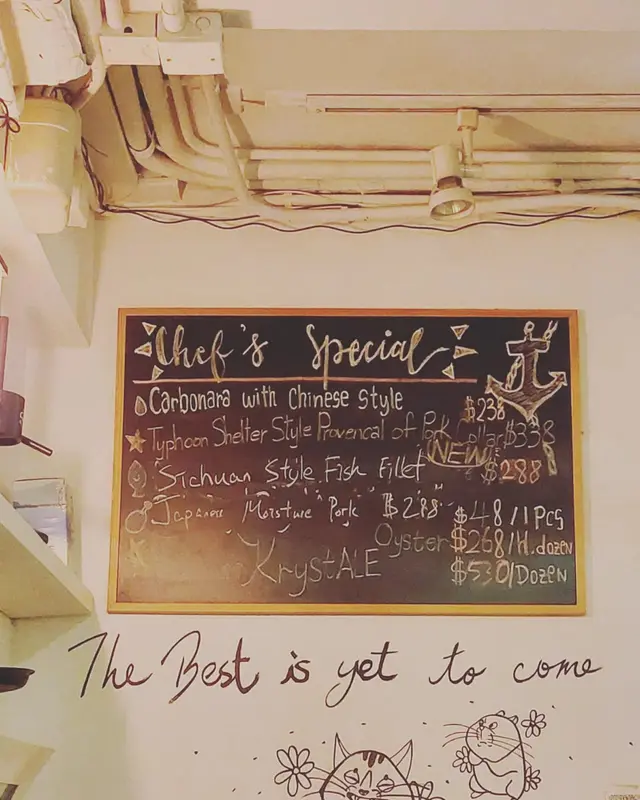 Chef's Special
Carbonara with Chinese Style $238
Typhoon Shelter Style Provencal of Pork Collar $338
NEW
Sichuan Style Fish Fillet $288
Japanese Moisture Pork $288
$48/1PCS
Oyster $268/H.dozen
KrystALE $530/Dozen
The Best is yet to come